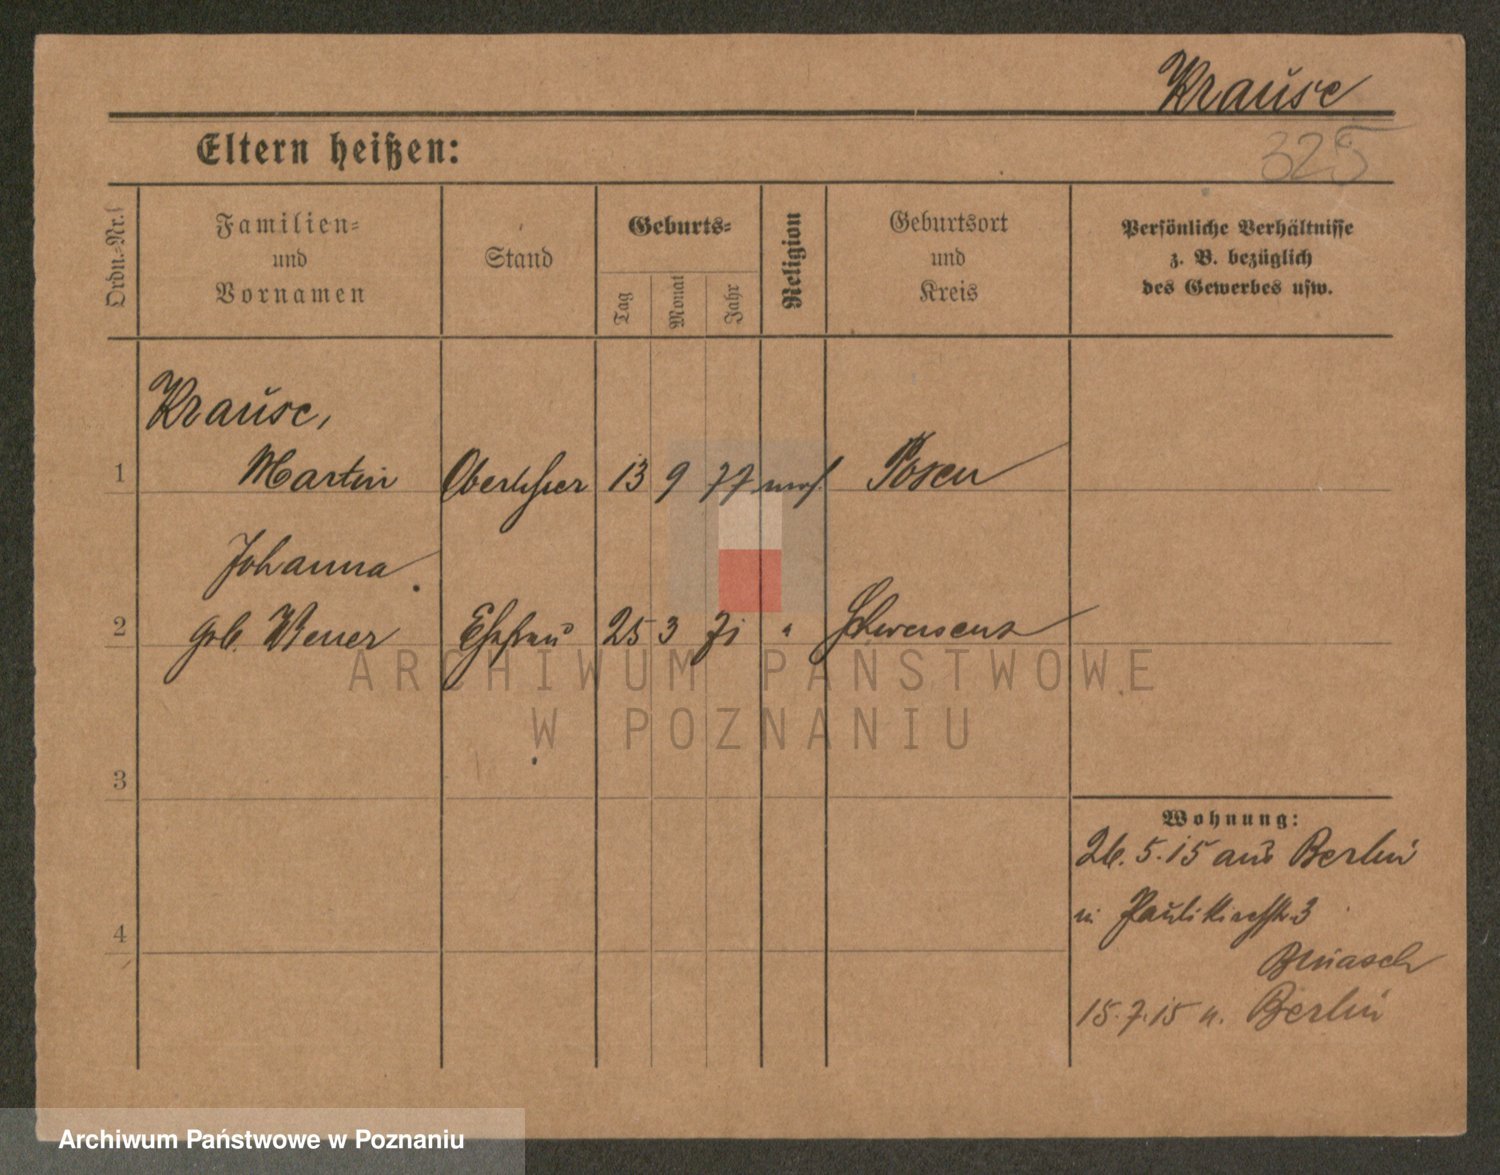 Krause
325
Eltern heißen:
Ordn.-Nr.
Familien-
und
Vornamen
Stand
Geburts-
Tag
Monat
Jahr
Religion
Geburtsort
und
Kreis
Persönliche Verhältnisse
z. B. bezüglich
des Gewerbes usw.
Krause,
1 Martin 13 9 77 mos. Posen
Johanna
2 geb. Ehefrau 25 3 71 " Schwersenz
3
4
Wohnung:
26.5.15 aus Berlin
in Paulikirchstr. 3
15.7.15 n. Berlin
ARCHIWUM PAŃSTWOWE
W POZNANIU
Archiwum Państwowe w Poznaniu